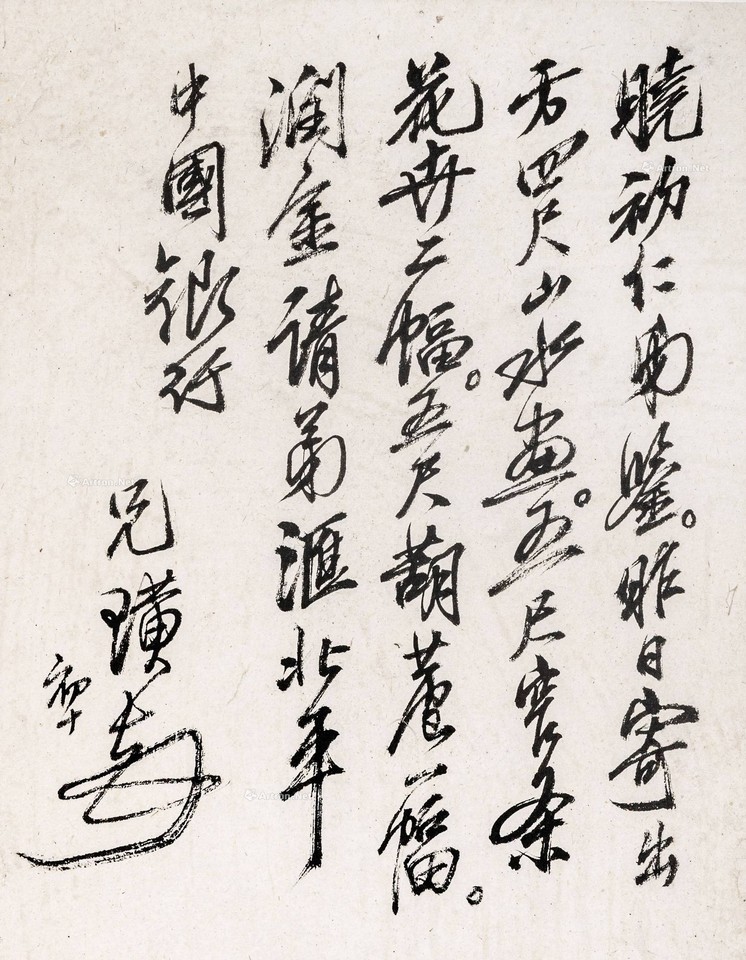 曉初仁弟鑒。昨日寄出
方四尺山水畫。五尺窄条
花卉二幅。五尺葫蘆一幅。
潤金請弟滙北平
中國銀行
兄璜
初十